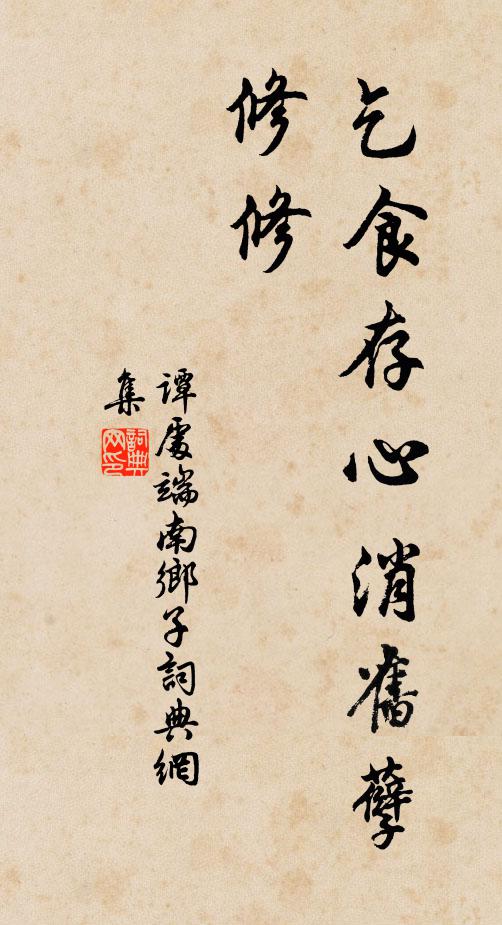 乞食存心消舊孽
修修
譚處端南鄉子詞典網
集
詞典
网印